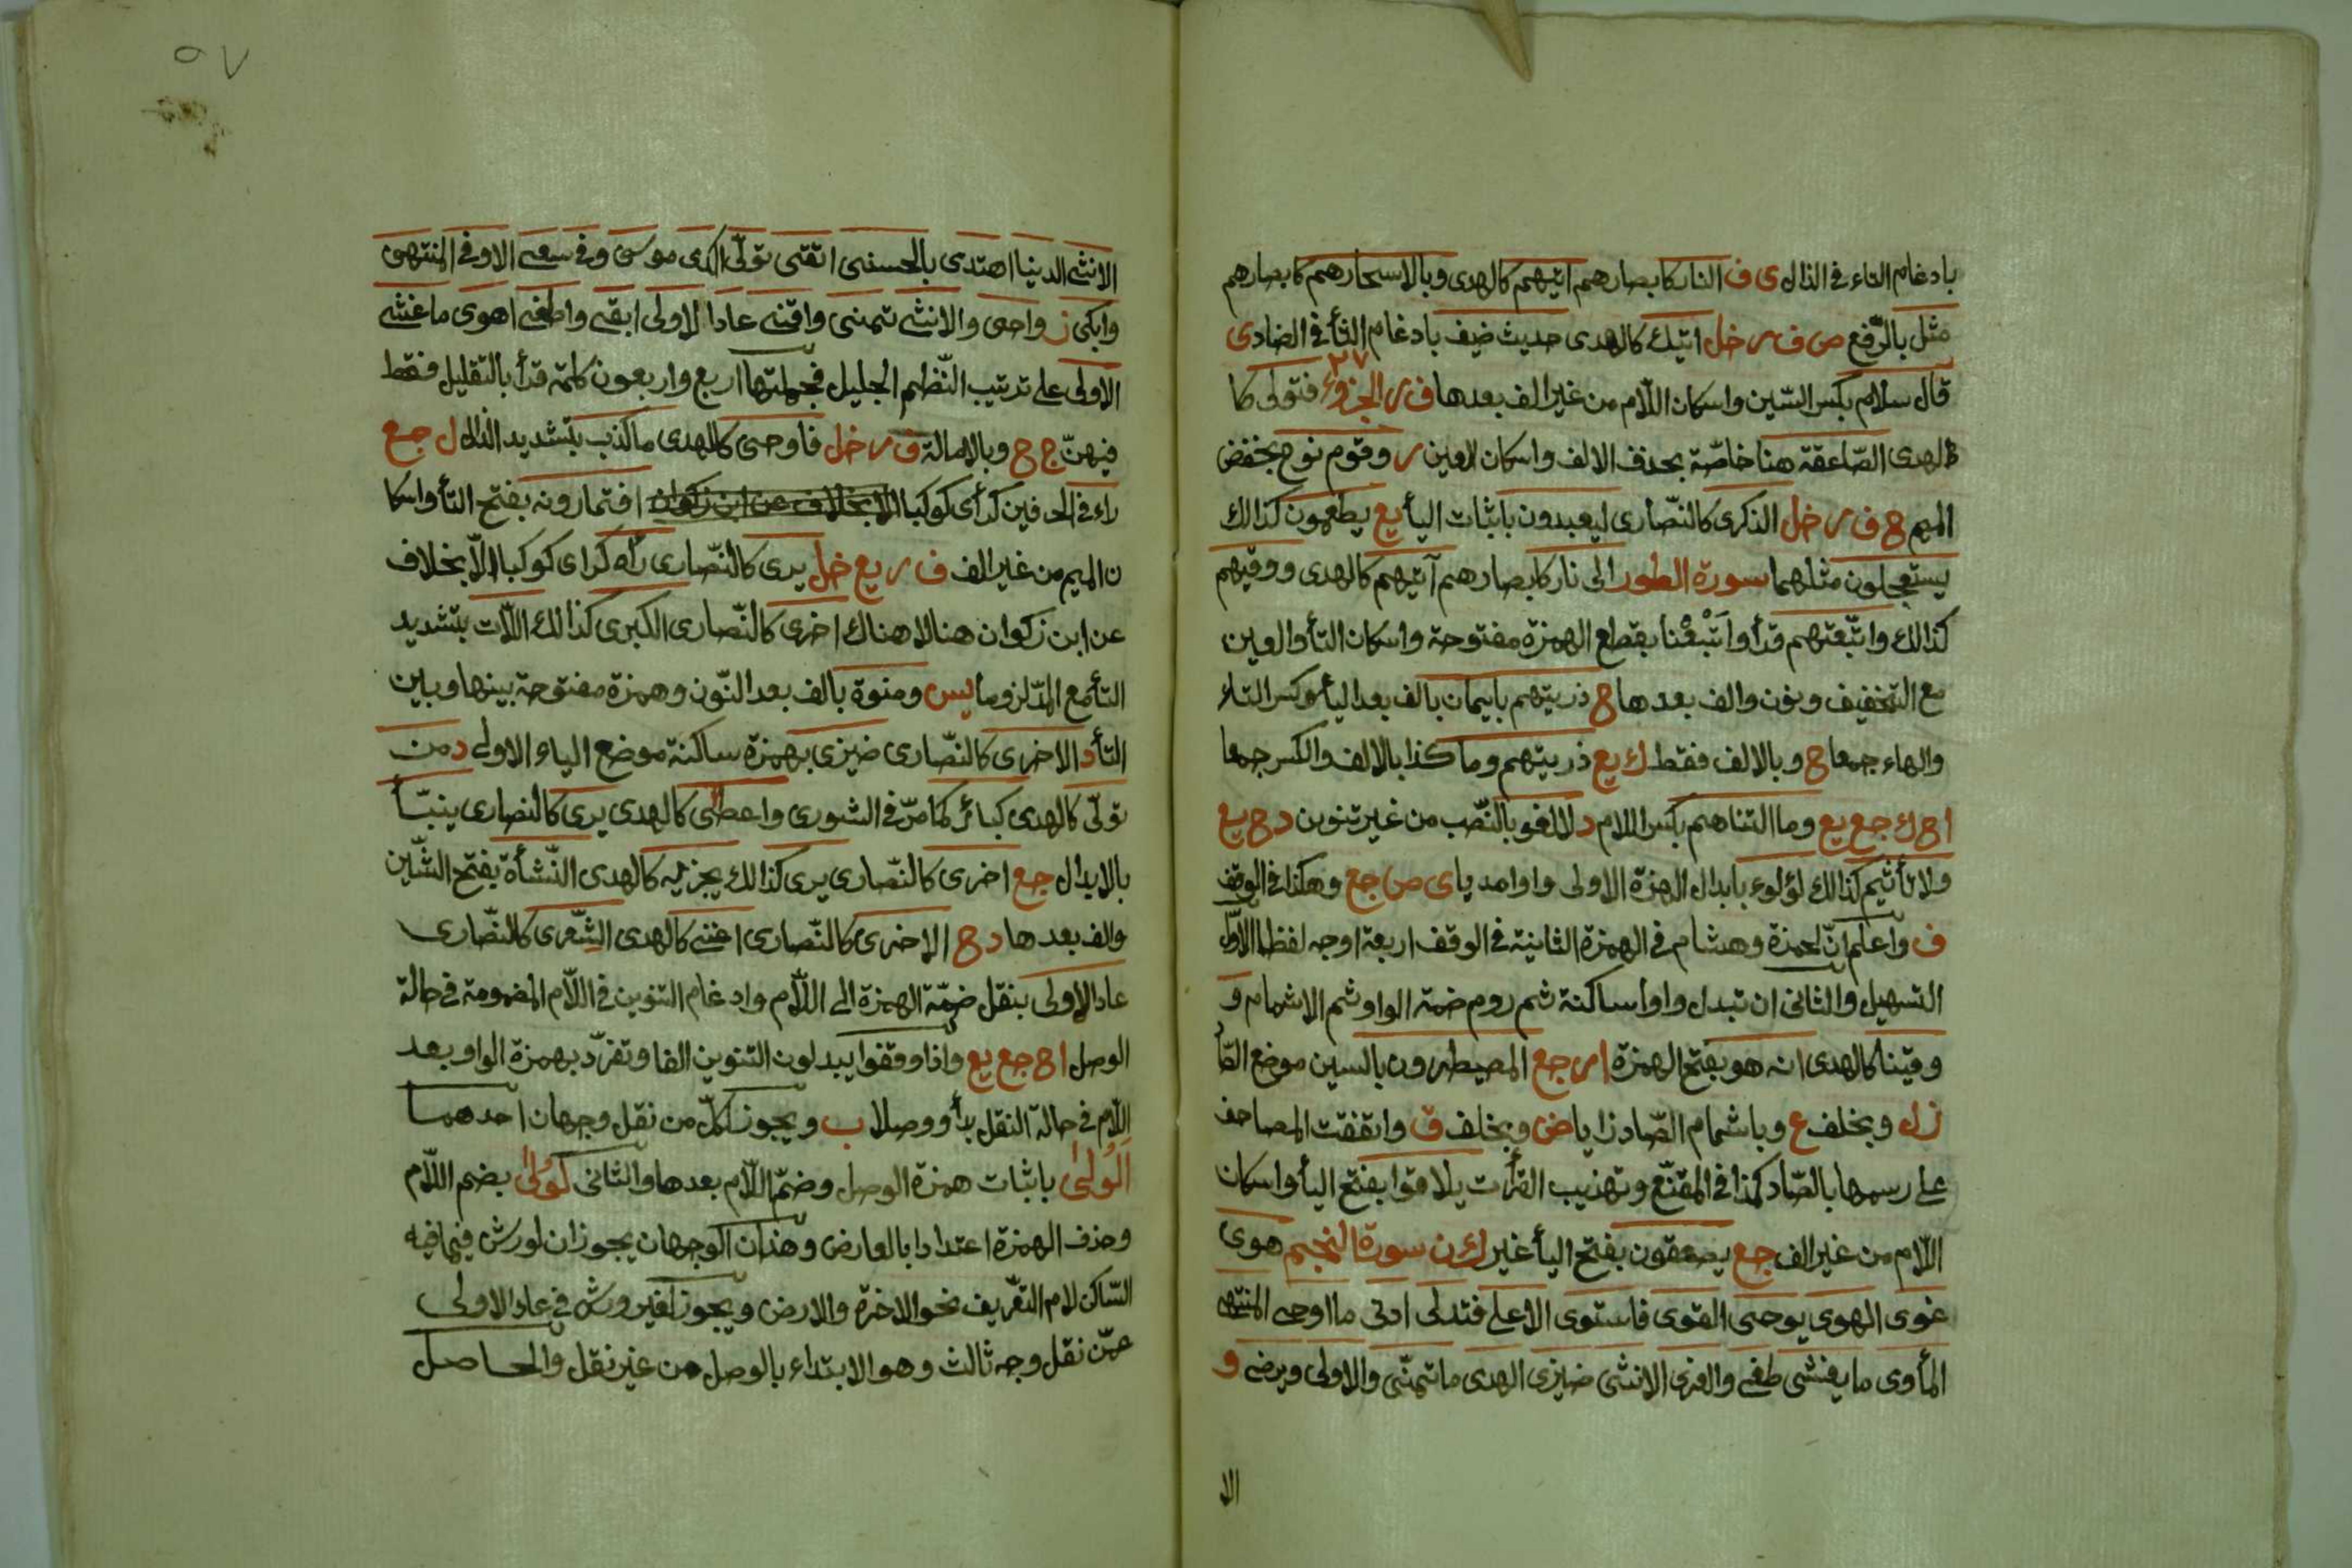 بادغام التاء فى الذال ى ف النار كابصارهم اتيهم كالهدى وبالاسحارهم كابصارهم
مثل بالرّفع ص ف ر خل اتيك كالهدى حديث ضيف بادغام الثأ فى الضاد ى
قال سلام بكسر السّين واسكان اللّام من غير الف بعدها ف ر الجزؤ ٢٧ فتولى كا
لهدى الصّاعقة هنا خاصّة بحذف الالف واسكان العين ر وقوم نوح بخفض
الميم ح ف ر خل الذكرى كالنّصارى ليعبدون باثبات اليأ يع يطعمون كذالك
يستعجلون مثلهما سورة الطور الى نار كابصارهم آتيهم كالهدى ووقيهم
كذالك واتّبعتهم قرأ واَتْبَعْنا بقطع الهمزة مفتوحة واسكان التأ والعين
مع التخفيف ونون والف بعدها ح ذريتهم بايمان بالف بعد اليأ وكسر التاء
والهاء جمعا ح وبالالف فقط ك يع ذريتهم وما كذا بالالف والكسر جمعا
ا ح ك جع يع وما التناهم بكسر اللام د لا لغو بالنّصب من غير تنوين د ح يع
ولا تأثيم كذالك لؤلوء بابدال الهمزة الاولى واوا مديا ى ص جع وهكذا فى الوقف
ف واعلم انّ لحمزة وهشام فى الهمزة الثانية فى الوقف اربعة اوجه لفظا الاوّل
التسهيل والثانى ان تبدل واوا ساكنة ثم روم ضمة الواو ثم الاشمام و
وقينا كالهدى انه هو بفتح الهمزة ا ر جع المصيطرون بالسين موضع الصّأ
ز ل وبخلف ع وباشمام الصّاد زايا ض وبخلف ق واتفقت المصاحف
على رسمها بالصّاد كذا فى المقنّع وتهذيب القرأت يلاقوا بفتح اليأ واسكان
اللّام من غير الف جع يصعقون بفتح اليأ غير ك ن سورة النجم هوى
غوى الهوى يوحى القوى فاستوى الاعلى فتدلى ادنى ما اوحى المنتهى
المأوى ما يغشى طغى والعزى الانثى ضيزى الهدى ما تمنّى والاولى ويرضى و
الا
٥٧
الانثى الدنيا اهتدى بالحسنى اتقى تولّى اكدى موسى وفى سعى الاوفى المنتهى
وابكى ن واحى والانثى تمنى واقنى عادا الاولى ابقى واطغى اهوى ما غشى
الاولى على ترتيب النّظم الجليل فجملتها اربع واربعون كلمة قرأ بالتقليل فقط
فيهنّ ج ح وبالامالة ف ر خل فاوحى كالهدى ما كذب بتشديد الذال ل جع
راء فى الحرفين كرأى كوكبا افتمارونه بفتح التأ واسكا
ن الميم من غير الف ف ر يع خل يرى كالنّصارى رأه كراى كوكبا الّا بخلاف
عن ابن ذكوان هنا لا هناك اخرى كالنّصارى الكبرى كذالك اللّات بتشديد
التأ مع المدّ لزوما يس ومنوة بالف بعد النّون وهمزة مفتوحة بينها وبين
التأ د الاخرى كالنّصارى ضيزى بهمزة ساكنة موضع الياء الاولى د من
تولّى كالهدى كبائر كما مرّ فى الشورى واعطى كالهدى يرى كالنصارى ينبّأ
بالابدال جع اخرى كالنّصارى يرى كذالك يجزيه كالهدى النّشأة بفتح الشّين
والف بعدها د ح الاخرى كالنّصارى اغنى كالهدى الشّعرى كالنّصارى
عادا الاولى بنقل ضمّة الهمزة الى اللّام وادغام التنوين فى اللّام المضمومة فى حالة
الوصل ا ح جع يع واذا وقفوا يبدلون التنوين الفا وتفرّد بهمزة الواو بعد
اللّام فى حالة النقل بدأ ووصلا ب ويجوز لكلّ من نقل وجهان احدهما
اَلُولىٰ باثبات همزة الوصل وضمّ اللّام بعدها والثانى لُولىٰ بضم اللّام
وحذف الهمزة اعتدادا بالعارض وهذان الوجهان يجوزان لورش فيما فيه
السّاكن لام التعّريف نحو الاخرة والارض ويجوز لغير ورش فى عادا الاولى
عمّن نقل وجه ثالث وهو الابتداء بالوصل من غير نقل والحاصل